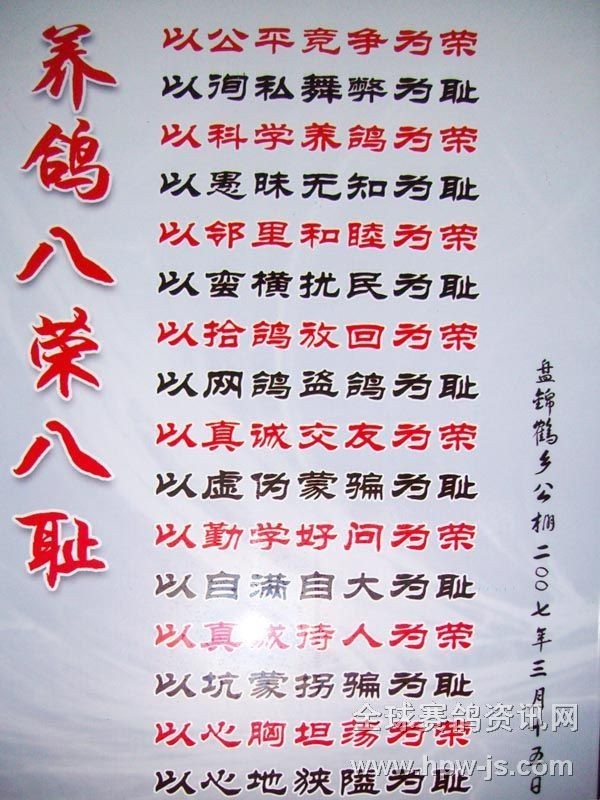 养鸽八荣八耻
以公平竞争为荣
以徇私舞弊为耻
以科学养鸽为荣
以愚昧无知为耻
以邻里和睦为荣
以蛮横扰民为耻
以拾鸽放回为荣
以网鸽盗鸽为耻
以真诚交友为荣
以虚伪蒙骗为耻
以勤学好问为荣
以自满自大为耻
以真诚待人为荣
以坑蒙拐骗为耻
以心胸坦荡为荣
以心地狭隘为耻
盘锦鹤乡公棚二〇〇七年三月十五日
全球赛鸽资讯网
www.hpw-js.com